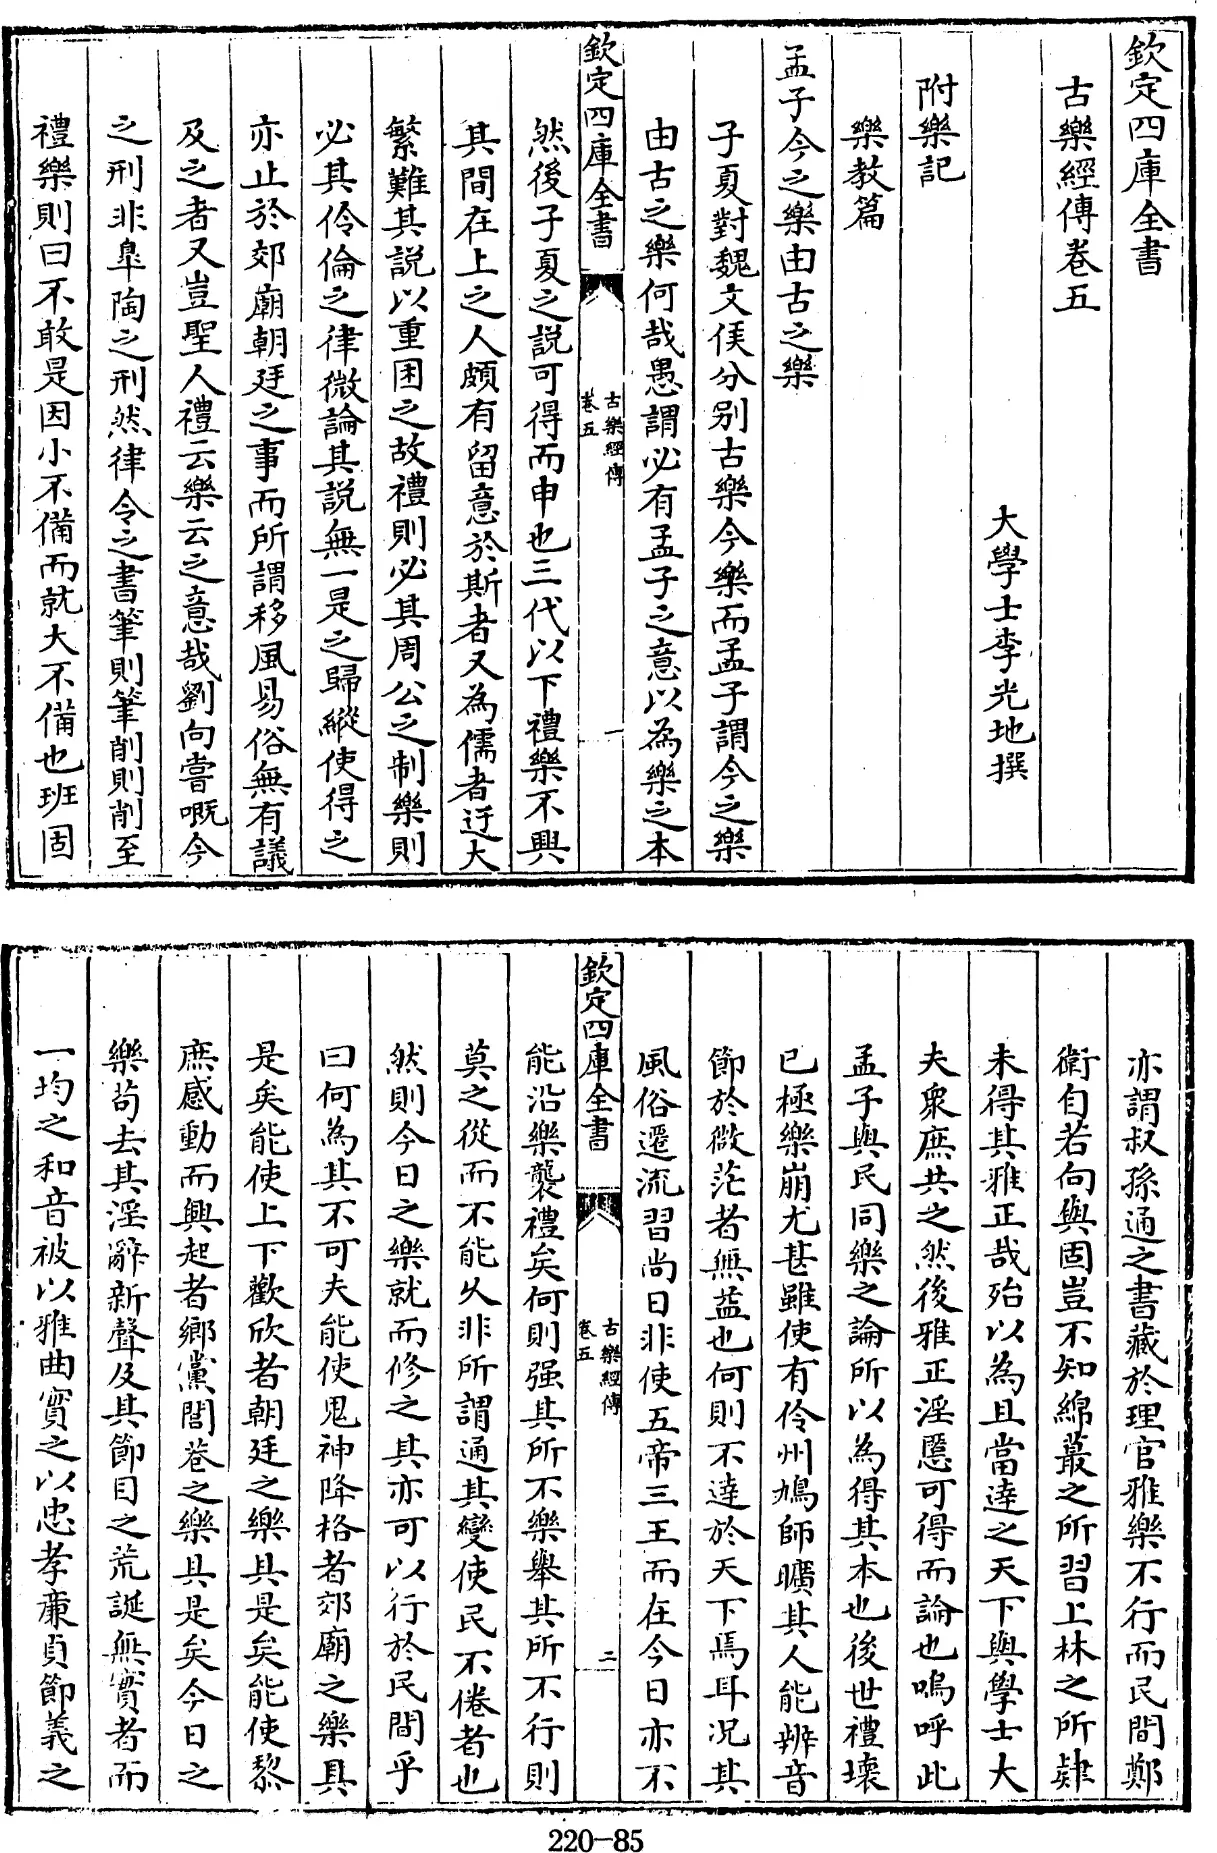 欽定四庫全書
古樂經傳卷五
大學士李光地撰
附樂記
樂教篇
孟子今之樂由古之樂
子夏對魏文侯分别古樂今樂而孟子謂今之樂
由古之樂何哉愚謂必有孟子之意以為樂之本
欽定四庫全書
古樂經傳
卷五
一
然後子夏之説可得而申也三代以下禮樂不興
其間在上之人頗有留意於斯者又為儒者迂大
繁難其説以重困之故禮則必其周公之制樂則
必其伶倫之律微論其説無一是之歸縱使得之
亦止於郊廟朝廷之事而所謂移風易俗無有議
及之者又豈聖人禮云樂云之意哉劉向嘗嘅今
之刑非臯陶之刑然律令之書筆則筆削則削至
禮樂則曰不敢是因小不備而就大不備也班固
亦謂叔孫通之書藏於理官雅樂不行而民間鄭
衛自若向與固豈不知綿蕞之所習上林之所肄
未得其雅正哉殆以為且當達之天下與學士大
夫衆庶共之然後雅正淫慝可得而論也嗚呼此
孟子與民同樂之論所以為得其本也後世禮壞
已極樂崩尤甚雖使有伶州鳩師曠其人能辨音
節於微茫者無益也何則不達於天下焉耳况其
風俗遷流習尚日非使五帝三王而在今日亦不
欽定四庫全書
古樂經傳
卷五
二
能沿樂襲禮矣何則强其所不樂舉其所不行則
莫之從而不能久非所謂通其變使民不倦者也
然則今日之樂就而修之其亦可以行於民間乎
曰何為其不可夫能使鬼神降格者郊廟之樂具
是矣能使上下歡欣者朝廷之樂具是矣能使黎
庶感動而興起者鄉黨閭巷之樂具是矣今日之
樂苟去其淫辭新聲及其節目之荒誕無實者而
一均之和音被以雅曲實之以忠孝廉貞節義之
220-85